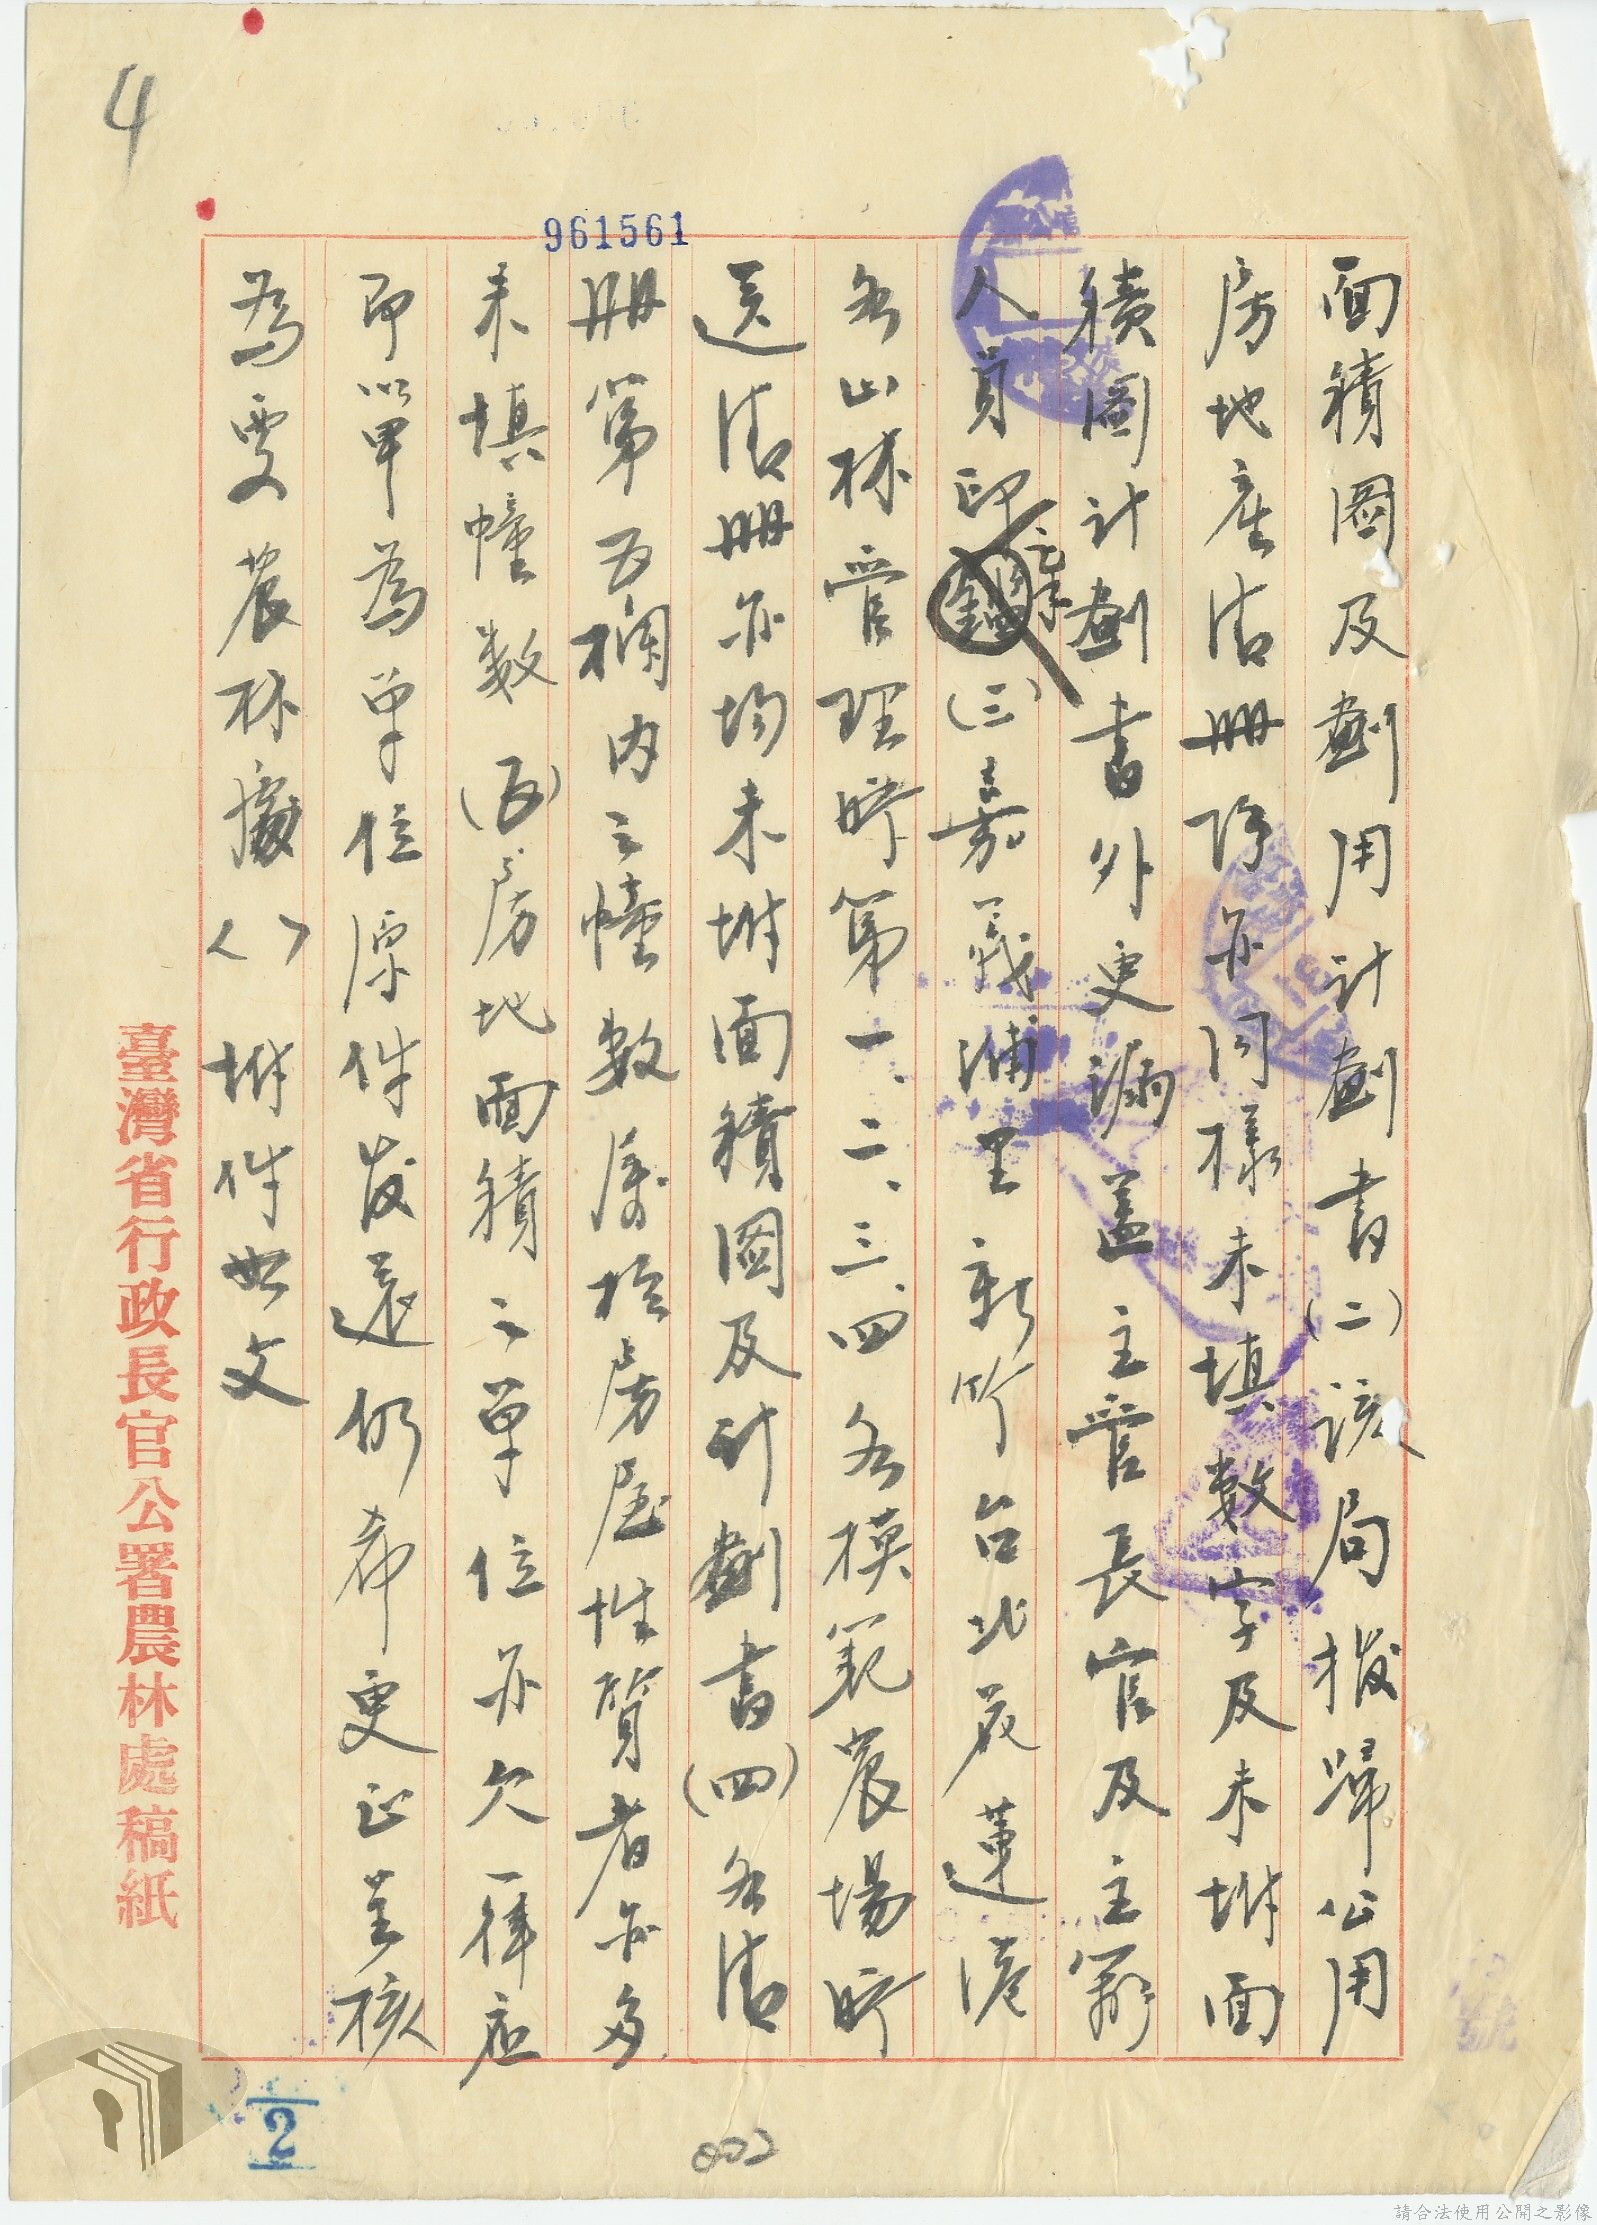 4
961561
面積圖及劃用計劃書(二)該局撥歸公用
房地產清冊除亦同樣未填數字及未坿面
積圖計劃書外更漏蓋主管長官及主辦
人員印鑑(三)嘉義浦里新竹台北花蓮港
各山林管理所第一、二、三、四、各模範農場所
送清冊亦均未坿面積圖及計劃書(四)各清
冊第五欄內之幢數屬於房屋性質者亦多
未填幢數(五)房地面積之單位亦欠一律應
即以甲為單位原件發還仍希更正呈核
為要農林處〈〉坿件如文
臺灣省行政長官公署農林處稿紙
2
002
請合法使用公開之影像